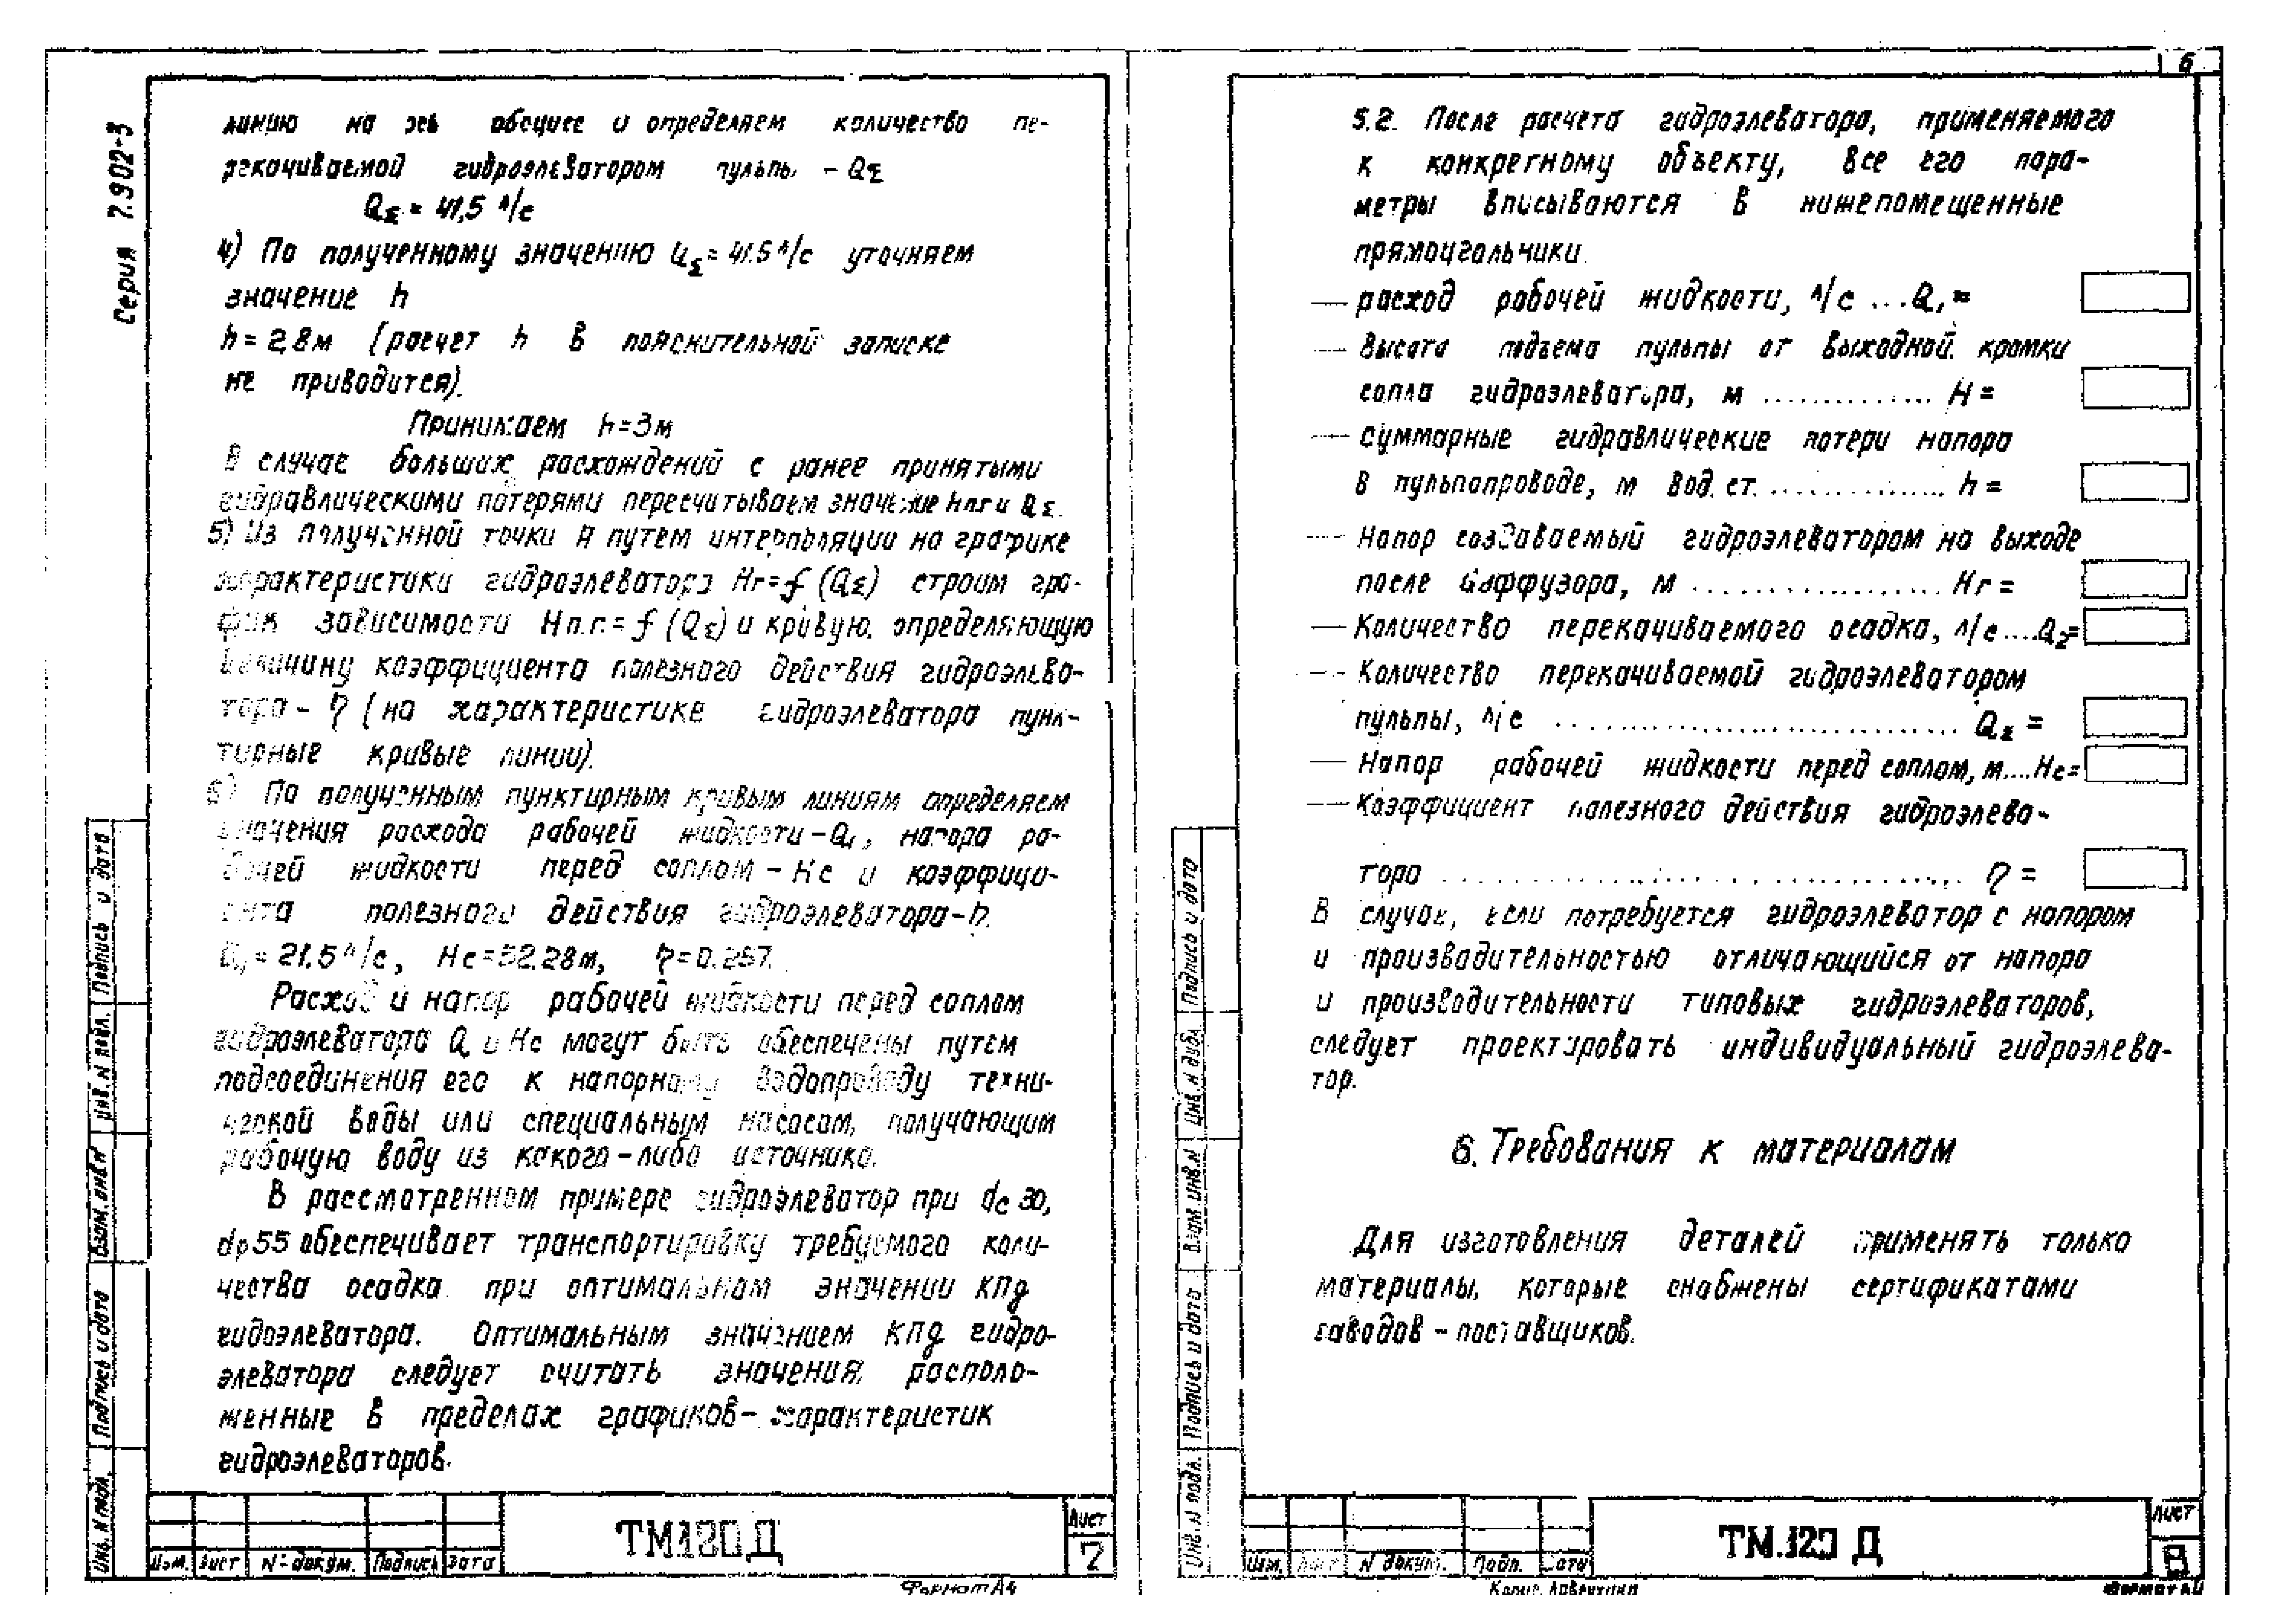 Серия 7.902-3
линию на ось абсцисс и определяем количество пе-
рекачиваемой гидроэлеватором пульпы - QΣ
QΣ = 41,5 л/с
4) По полученному значению QΣ = 41.5 л/с уточняем
значение h
h = 2,8м (расчет h в пояснительной записке
не приводится).
Принимаем h=3м
В случае больших расхождений с ранее принятыми
гидравлическими потерями пересчитываем значение Hпг и QΣ.
5) Из полученной точки А путем интерполяции на графике
характеристики гидроэлеватора Hг=f (QΣ) строим гра-
фик зависимости Hп.г.=f (QΣ) и кривую, определяющую
величину коэффициента полезного действия гидроэлева-
тора - η (на характеристике гидроэлеватора пунк-
тирные кривые линии).
6) По полученным пунктирным кривым линиям определяем
значения расхода рабочей жидкости - Q1, напора ра-
бочей жидкости перед соплом - Hc и коэффици-
ента полезного действия гидроэлеватора - η.
Q1 = 21.5 л/с, Hc = 52.28м, η = 0.257.
Расход и напор рабочей жидкости перед соплом
гидроэлеватора Q и Hc могут быть обеспечены путем
подсоединения его к напорному водопроводу техни-
ческой воды или специальным насосам, получающим
рабочую воду из какого-либо источника.
В рассмотренном примере гидроэлеватор при dc 30,
dp 55 обеспечивает транспортировку требуемого коли-
чества осадка при оптимальном значении КПД
гидоэлеватора. Оптимальным значением КПД гидро-
элеватора следует считать значения, располо-
женные в пределах графиков - характеристик
гидроэлеваторов.
Инв. N подл. Подпись и дата Взам. инв N Инв. N подл. Подпись и дата
Изм. Лист N докум. Подпись Дата
ТМ.120 Д
Лист
7
Формат А4
6
5.2. После расчета гидроэлеватора, применяемого
к конкретному объекту, все его пара-
метры вписываются в нижепомещенные
прямоугольники.
— расход рабочей жидкости, л/с ... Q1 =
— Высота подъема пульпы от выходной кромки
сопла гидроэлеватора, м .............. H =
— Суммарные гидравлические потери напора
в пульпопроводе, м вод. ст. ................ h =
— Напор создаваемый гидроэлеватором на выходе
после диффузора, м .................. Hг =
— Количество перекачиваемого осадка, л/с .... Q2 =
— Количество перекачиваемой гидроэлеватором
пульпы, л/с .............................. QΣ =
— Напор рабочей жидкости перед соплом, м.... Hc =
— Коэффициент полезного действия гидроэлева-
тора .................................. η =
В случае, если потребуется гидроэлеватор с напором
и производительностью отличающийся от напора
и производительности типовых гидроэлеваторов,
следует проектировать индивидуальный гидроэлева-
тор.
6. Требования к материалам
Для изготовления деталей применять только
материалы, которые снабжены сертификатами
заводов - поставщиков.
Инв. N подл. Подпись и дата Взам. инв. N Инв. N дубл. Подпись и дата
Изм. Лист N докум. Подп. Дата
ТМ.120 Д
Лист
8
Копир. Лаврухина
Формат А4